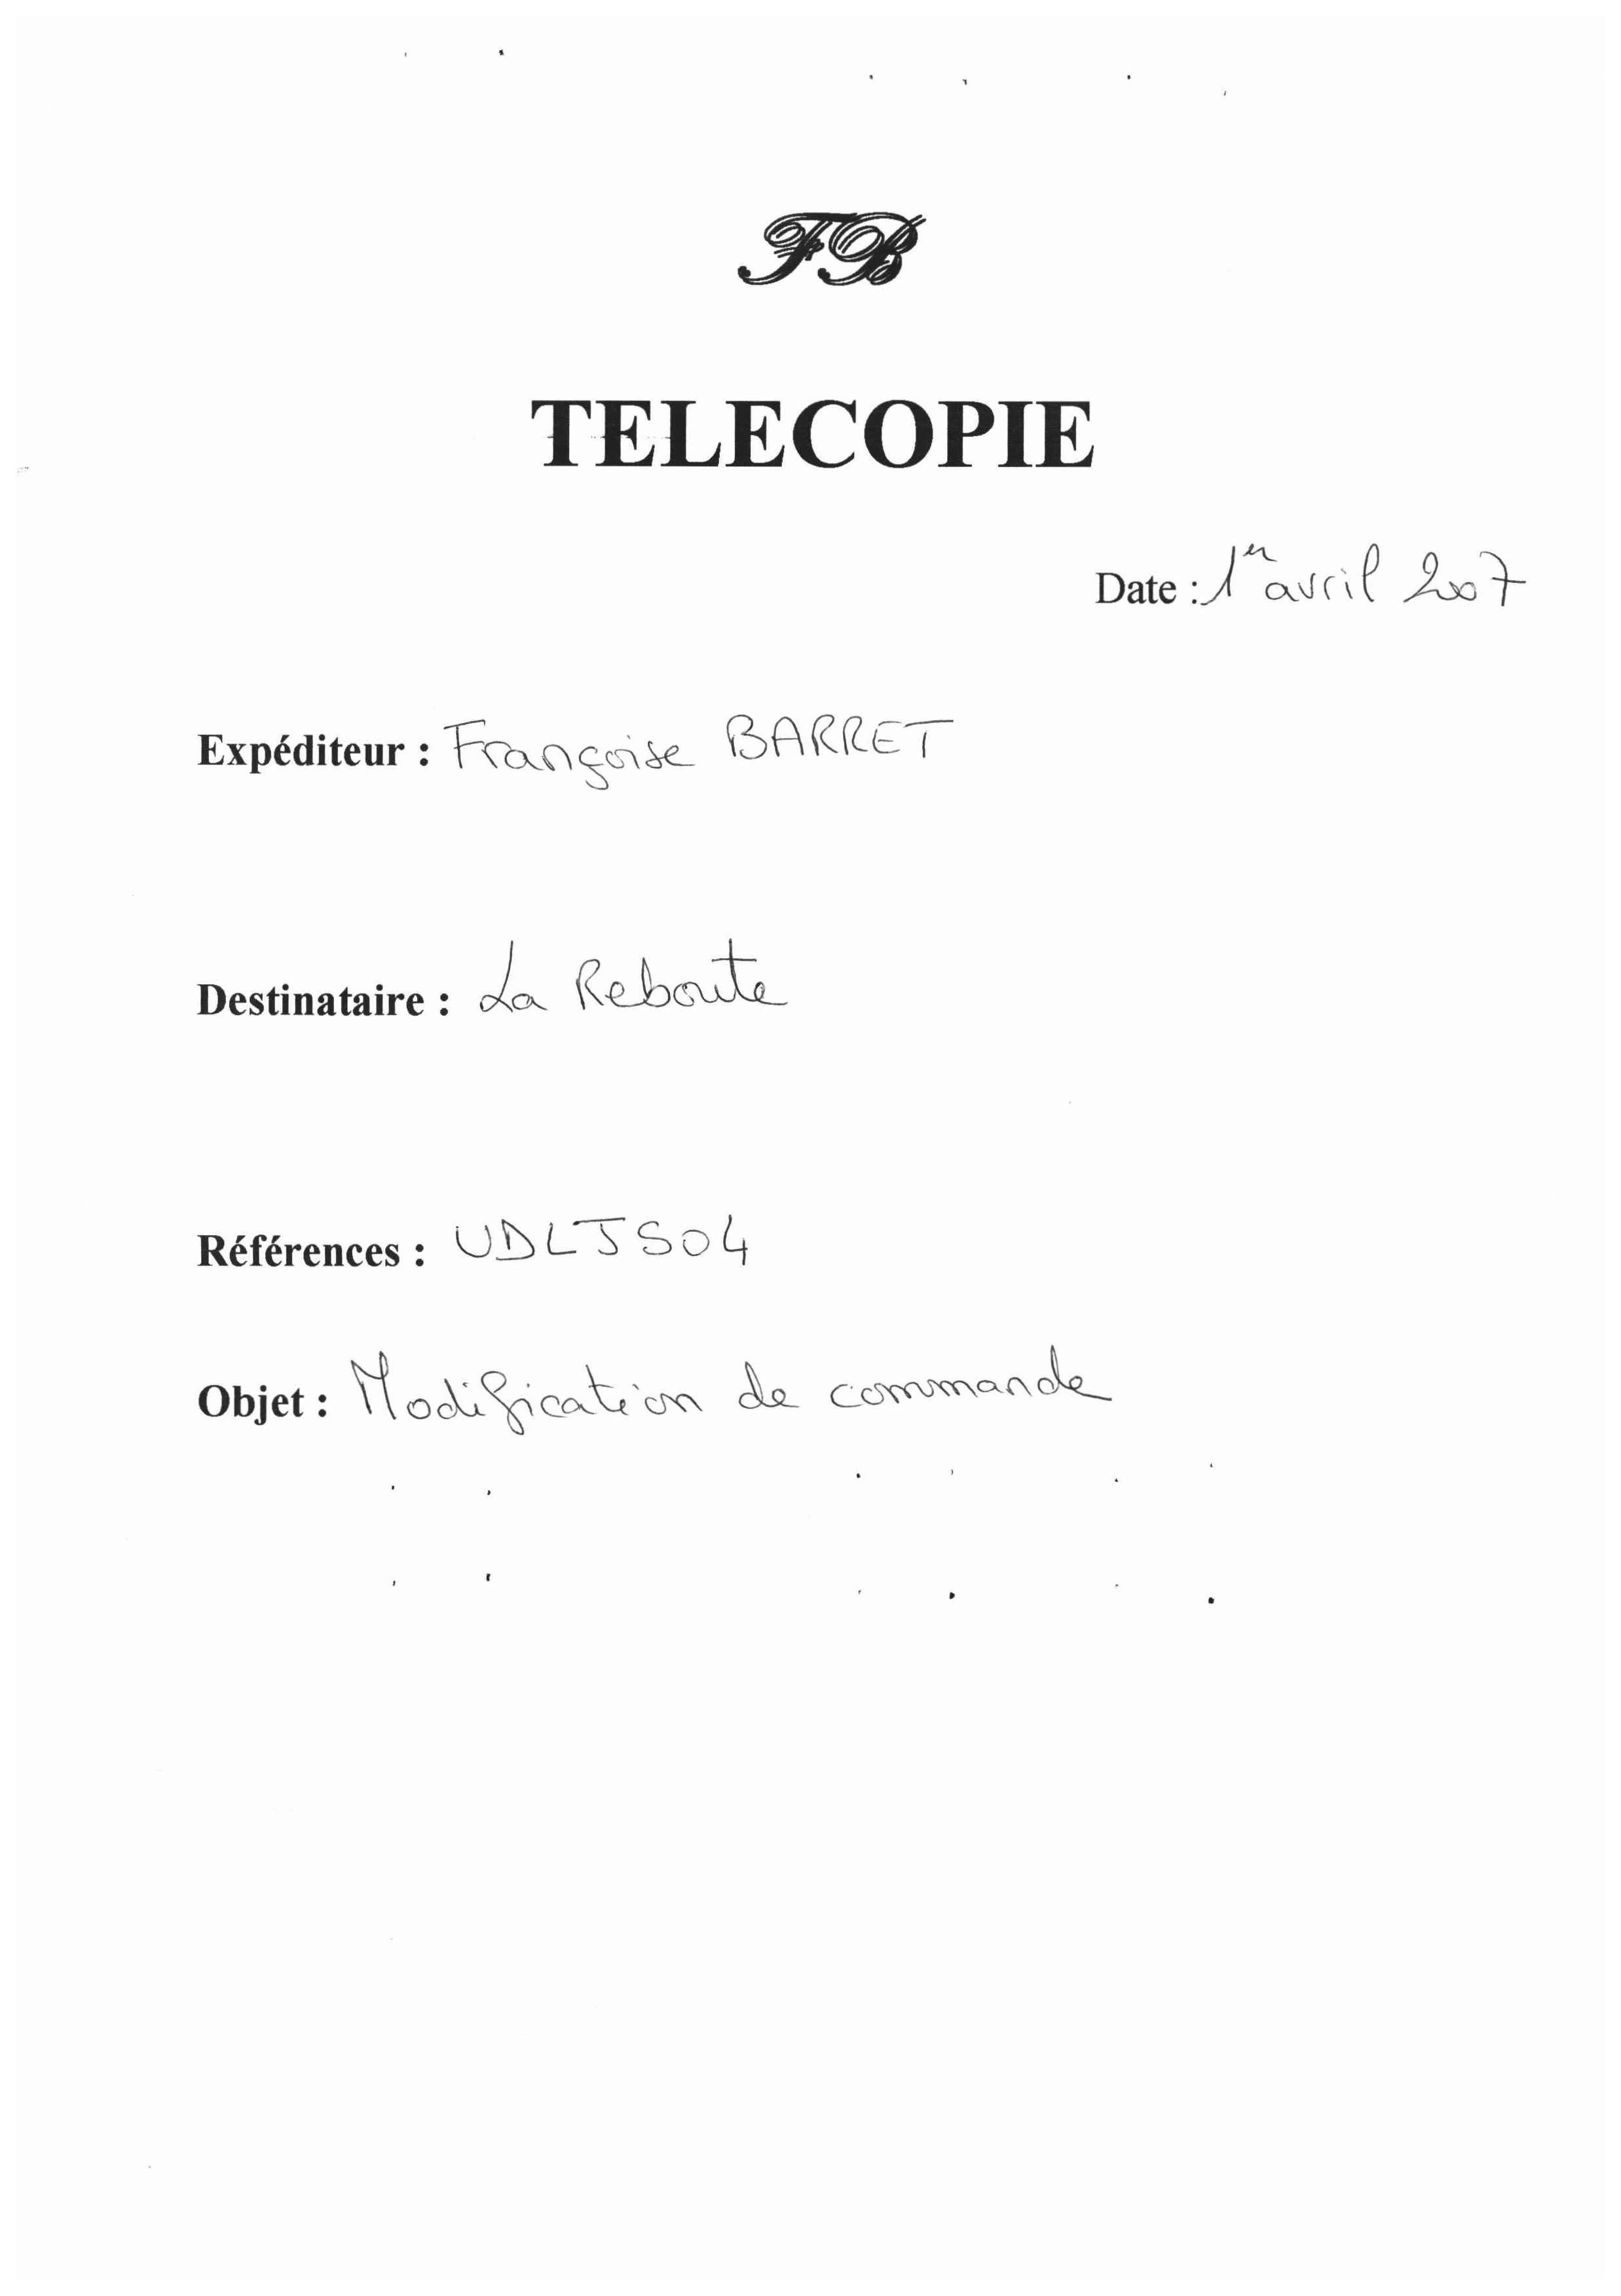 FB
TELECOPIE
Date : 1er avril 2007
Expéditeur : Françoise BARRET
Destinataire : La Reboute
Références : UDLJS04
Objet : Modification de commande